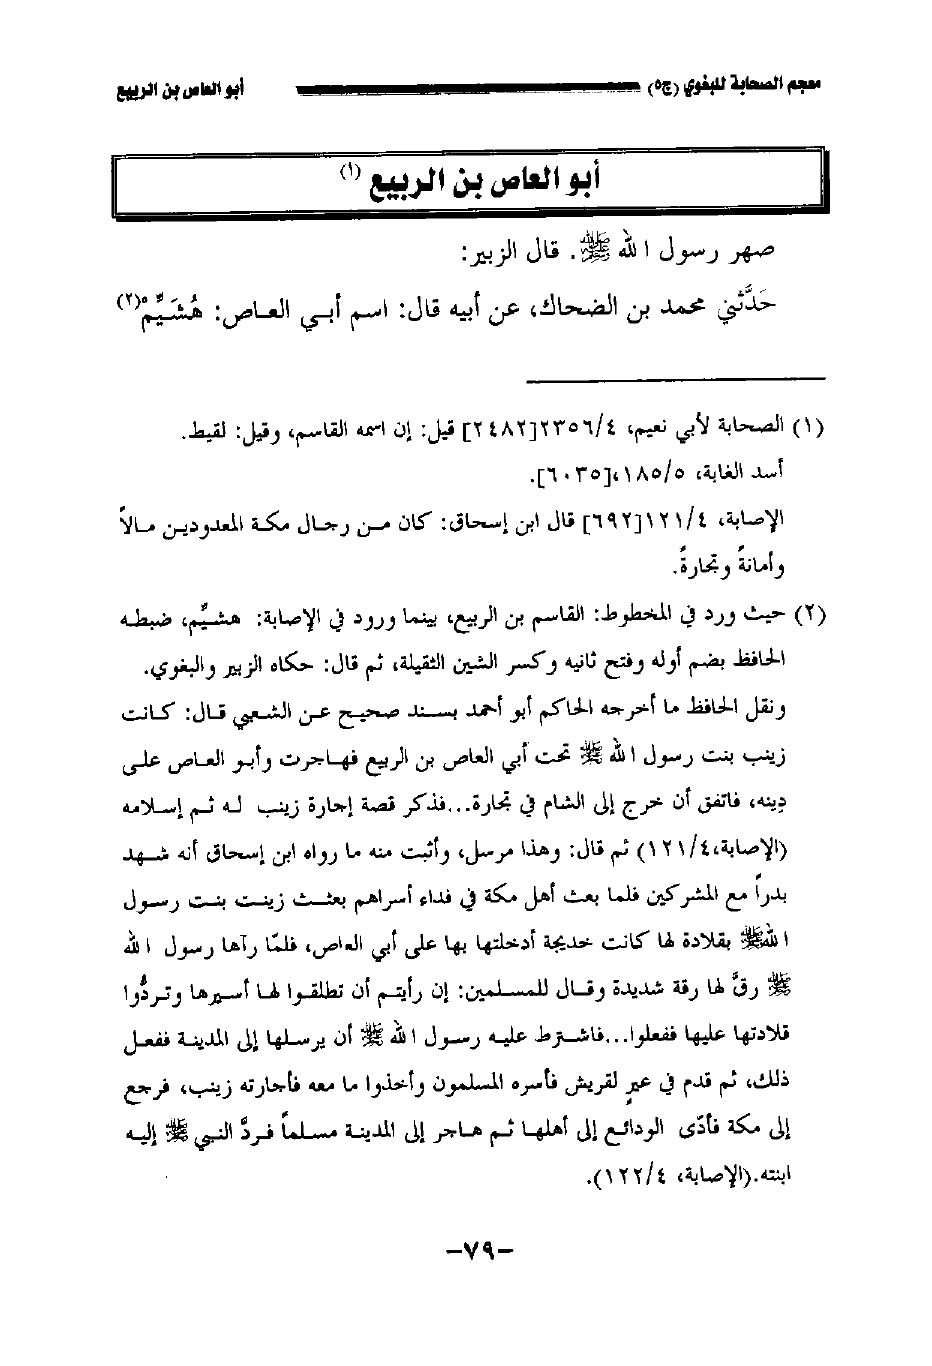 معجم الصحابة للبغوي (ج٥) أبو العاص بن الربيع
أبو العاص بن الربيع (١)
صهر رسول الله ﷺ. قال الزبير:
حَدَّثني محمد بن الضحاك، عن أبيه قال: اسم أبي العاص: هُشَيِّمْ(٢)
(١) الصحابة لأبي نعيم، ٢٣٥٦/٤[٢٤٨٢] قيل: إن اسمه القاسم، وقيل: لقيط.
أسد الغابة، ١٨٥/٥،[٦٠٣٥].
الإصابة، ١٢١/٤[٦٩٢] قال ابن إسحاق: كان من رجال مكة المعدودين مالاً
وأمانةً وتجارةً.
(٢) حيث ورد في المخطوط: القاسم بن الربيع، بينما ورود في الإصابة: هشيِّم، ضبطه
الحافظ بضم أوله وفتح ثانيه وكسر الشين الثقيلة، ثم قال: حكاه الزبير والبغوي.
ونقل الحافظ ما أخرجه الحاكم أبو أحمد بسند صحيح عن الشعبي قال: كانت
زينب بنت رسول الله ﷺ تحت أبي العاص بن الربيع فهاجرت وأبو العاص على
دِينه، فاتفق أن خرج إلى الشام في تجارة...فذكر قصة إجارة زينب له ثم إسلامه
(الإصابة،١٢١/٤) ثم قال: وهذا مرسل، وأثبت منه ما رواه ابن إسحاق أنه شهد
بدراً مع المشركين فلما بعث أهل مكة في فداء أسراهم بعثت زينت بنت رسول
اللهﷺ بقلادة لها كانت خديجة أدخلتها بها على أبي العاص، فلمّا رآها رسول الله
ﷺ رقَّ لها رقة شديدة وقال للمسلمين: إن رأيتم أن تطلقوا لها أسيرها وتردُّوا
قلادتها عليها ففعلوا...فاشترط عليه رسول الله ﷺ أن يرسلها إلى المدينة ففعل
ذلك، ثم قدم في عيرٍ لقريش فأسره المسلمون وأخذوا ما معه فأجارته زينب، فرجع
إلى مكة فأدّى الودائع إلى أهلها ثم هاجر إلى المدينة مسلماً فردَّ النبي ﷺ إليه
ابنته.(الإصابة، ١٢٢/٤).
-٧٩-